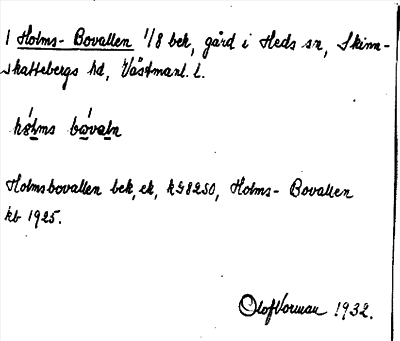 1 Holms-Bovallen 1/8 bek, gård i Heds sn, Skinn-
skattebergs hd, Västmanl. l.
hólms bóvaln
Holmsbovallen bek, ek, kS8250, Holms-Bovallen
kb 1925.
Olof Vorman 1932.